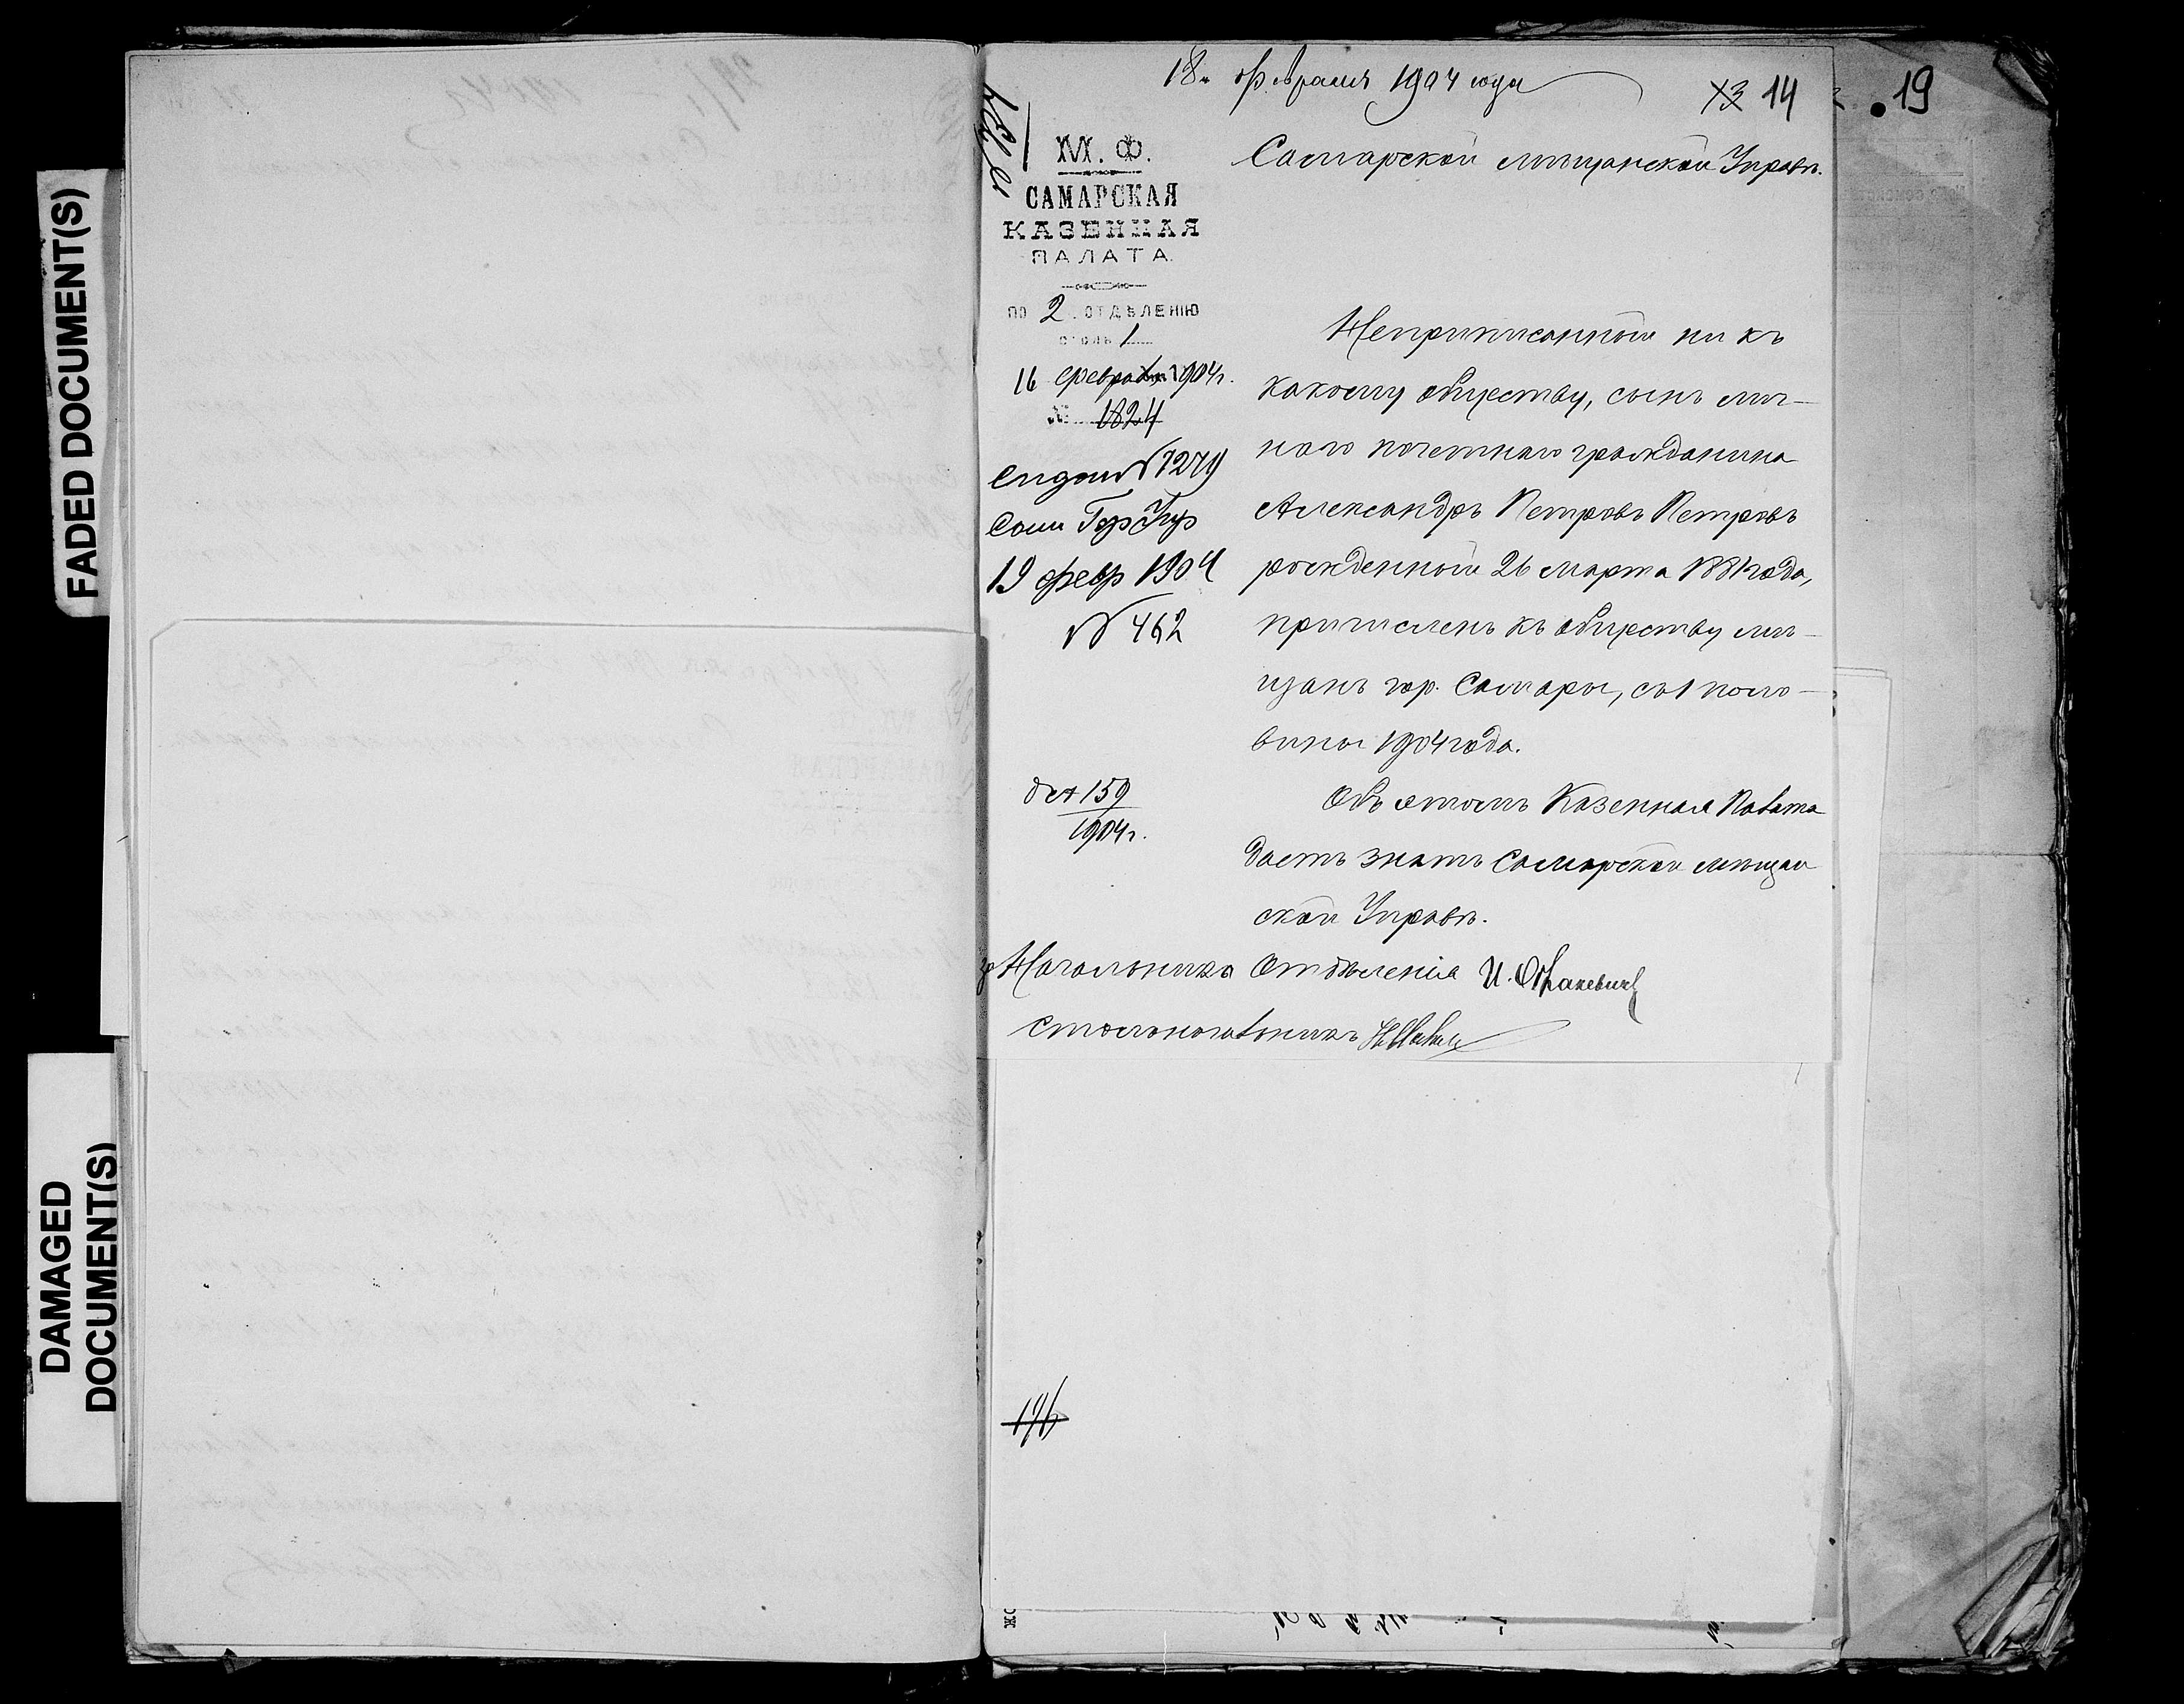 FADED DOCUMENT(S)
DAMAGED
DOCUMENT(S)
18 февраля 1904 года
14
19
М. Ф.
САМАРСКАЯ
КАЗЕННАЯ
ПАЛАТА.
ПО 2 ОТДѢЛЕНІЮ
столъ 1
16 февраля 1904 г.
№ 1824
19 февр 1904
№ 462
159
1904 г.
Самарской мѣщанской Управѣ.
Неприписанной ни къ
какому обществу, сынъ лич-
наго почетнаго гражданина
Александръ Петровъ Петровъ
рожденной 26 марта 1881 года,
причисленъ къ обществу мѣ-
щанъ гор. Самары, съ 1 поло-
вины 1904 года.
Объ этомъ Казенная Палата
даетъ знать Самарской мѣщан
ской Управѣ.
За Начальника Отдѣленія
Столоначальникъ
176